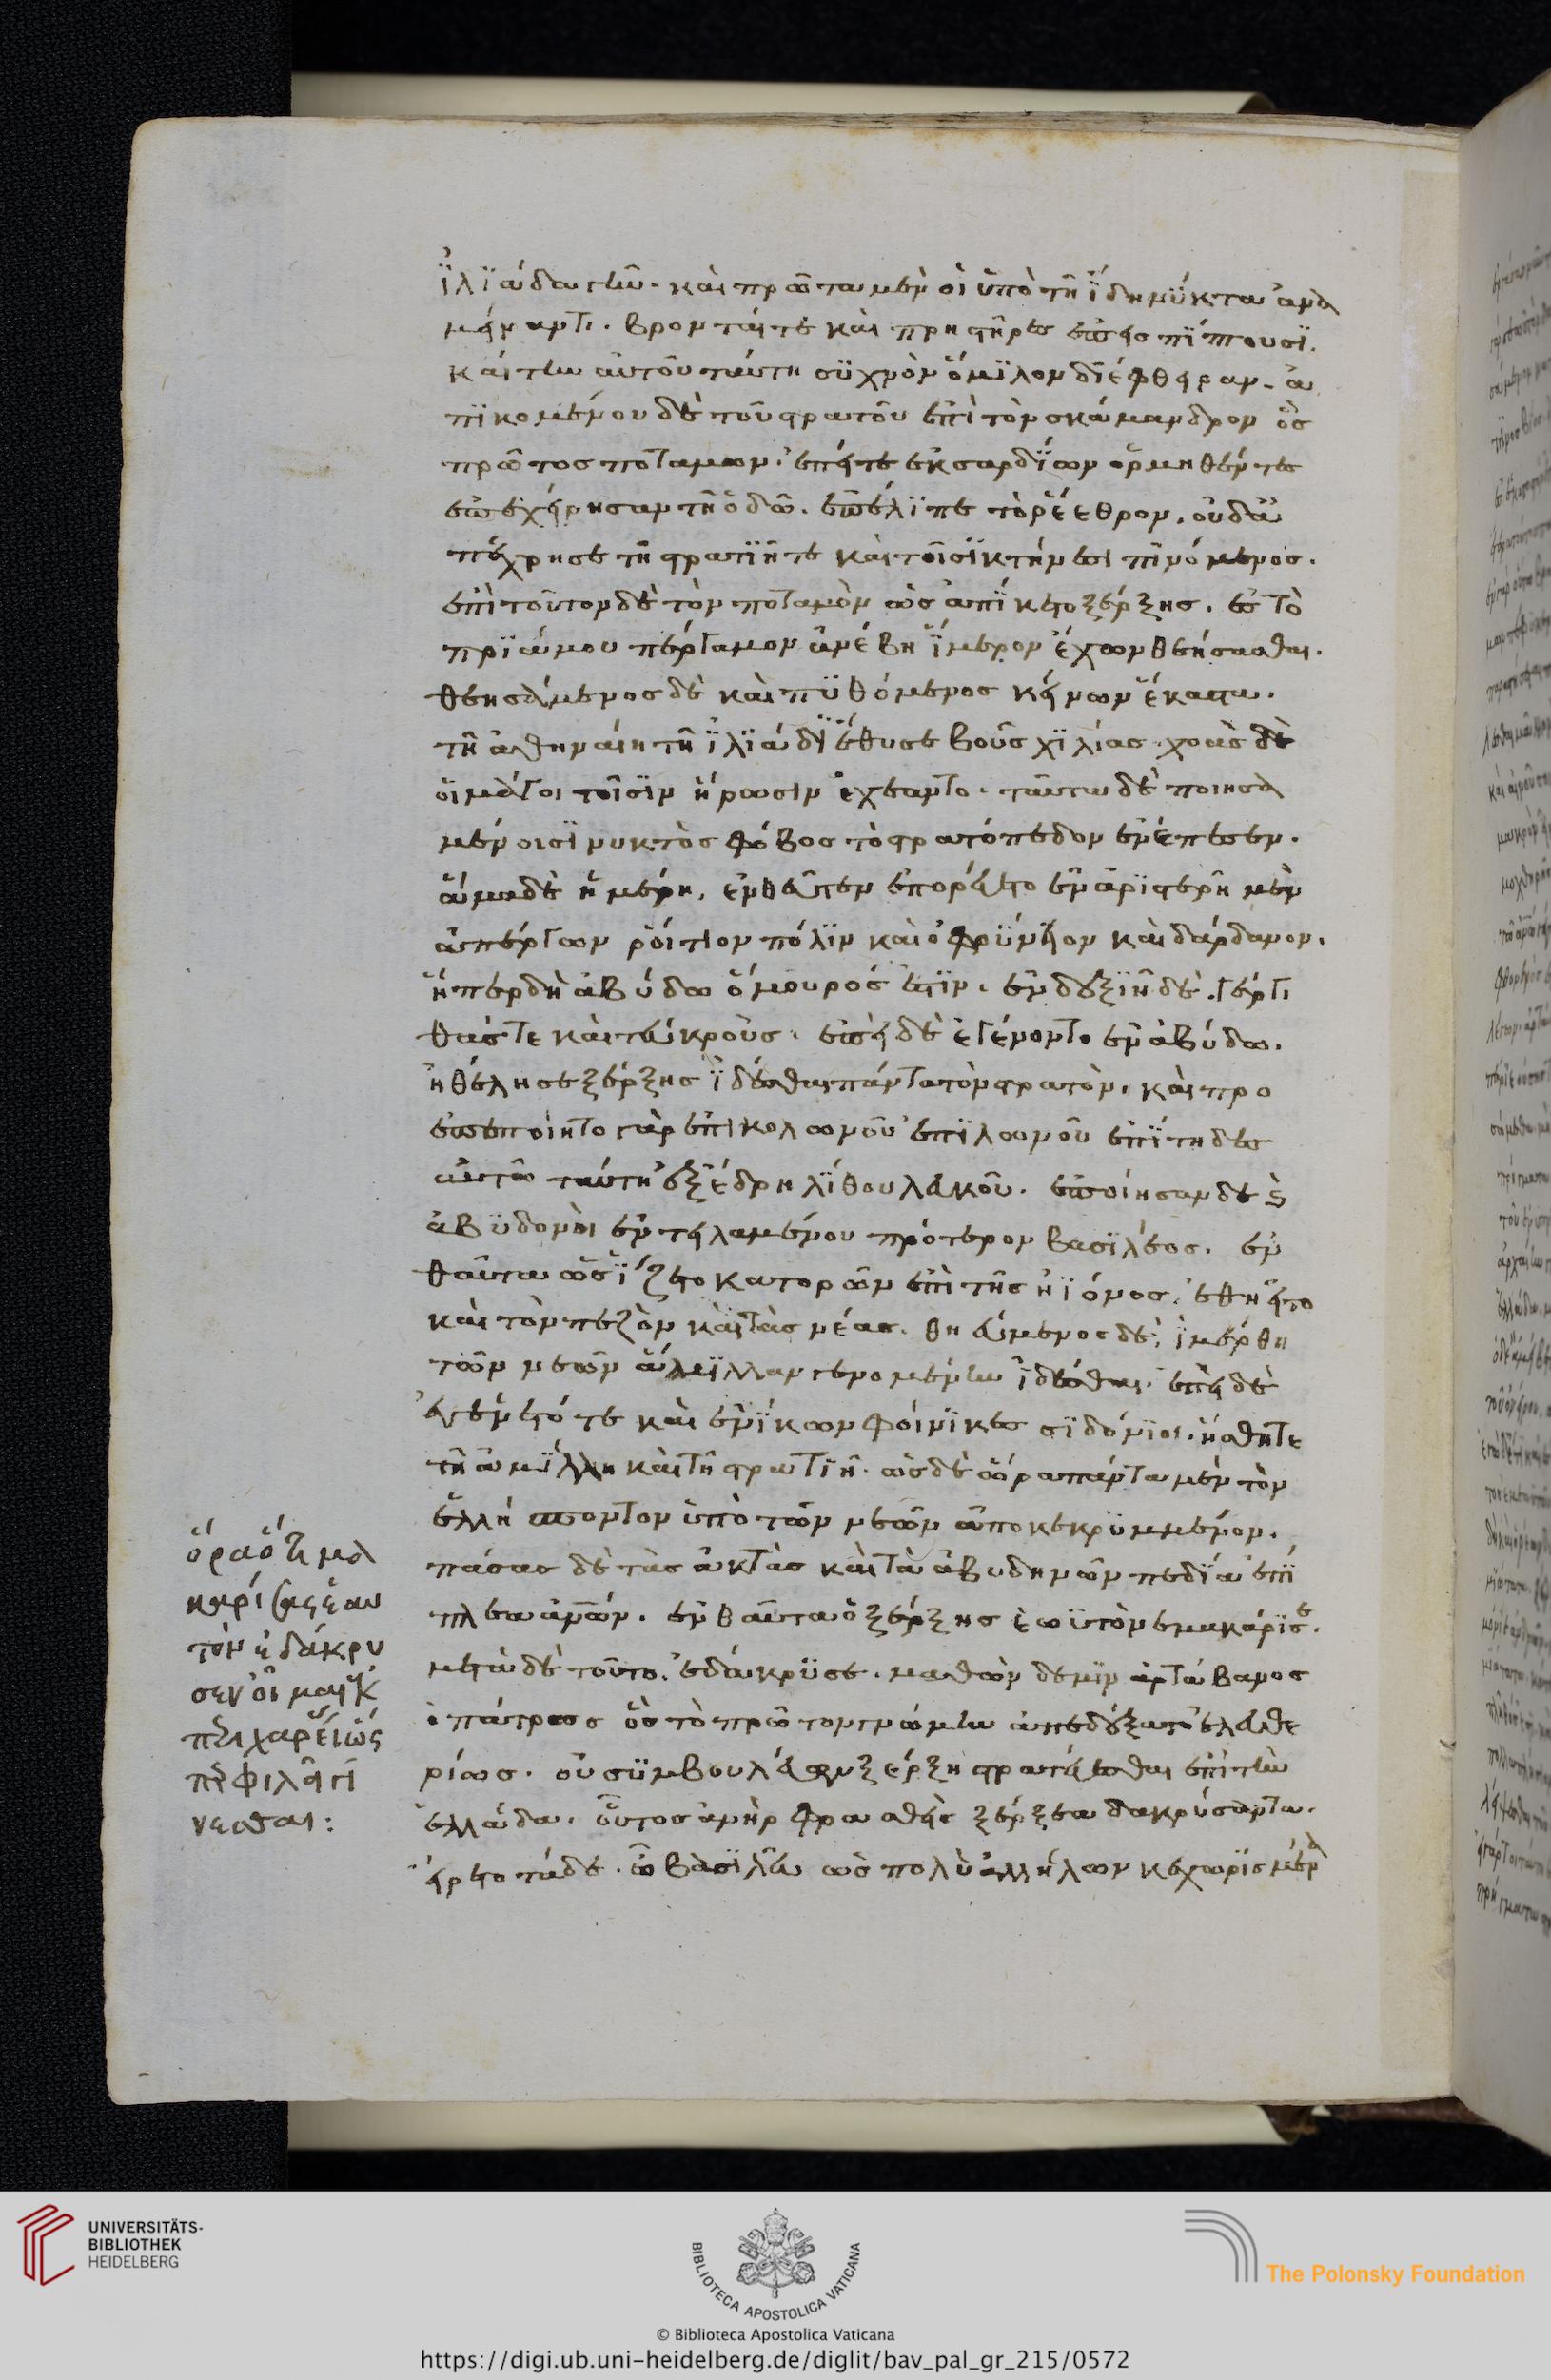 ἰλιάδα γῆν· καὶ πρῶτα μὲν οἱ ὑπὸ τῆ ἴδη νύκτα ἀνα
μείναντι. βρονταί τε καὶ πρηστῆρες ἐπεισπίπτουσι.
καί τινα αὐτοῦ ταύτη συχνὸν ὅμιλον διέφθειραν. ἀ
πικομένου δὲ τοῦ στρατοῦ ἐπὶ τὸν σκάμανδρον ὃς
πρῶτος ποταμῶν. ἐπείτε ἐκ σαρδίων ὁρμηθέντες
ἐπεχείρησαν τῆ ὁδῶ. ἐπέλιπε τὸ ῥέεθρον. οὐδ' ἀ
πέχρησε τῆ στρατιῆ τε καὶ τοῖσι κτήνεσι πινόμενος.
ἐπὶ τοῦτον δὲ τὸν ποταμὸν ὡς ἀπίκετο ξέρξης. ἐς τὸ
πριάμου πέργαμον ἀνέβη ἵμερον ἔχων θεήσασθαι.
θεησάμενος δὲ καὶ πυθόμενος κείνων ἕκαστα.
τῆ ἀθηναίη τῆ ἰλιάδι ἔθυσε βοῦς χιλίας. χοὰς δὲ
οἱ μάγοι τοῖσιν ἥρωσιν ἐχέαντο. ταῦτα δὲ ποιησα
μένοισι νυκτὸς φόβος τὸ στρατόπεδον ἐνέπεσεν.
ἅμα δὲ ἡμέρη, ἐνθεῦτεν ἐπορεύετο ἐν ἀριστερῆ μὲν
ἀπέργων ῥοίτιον πόλιν καὶ ὀφρύνειον καὶ δάρδανον.
ἥπερ δὴ ἀβύδω ὅμουρός ἐστιν. ἐν δεξιῆ δὲ. γέργι
θάς τε καὶ τευκρούς. ἐπεὶ δὲ ἐγένοντο ἐν ἀβύδω.
ἠθέλησε ξέρξης ἰδέσθαι πάντα τὸν στρατόν. καὶ προ
επεποίητο γὰρ ἐπὶ κολωνοῦ ἐπιλωνοῦ ἐπίτηδες
αὐτῶ ταύτη ἐξέδρη λίθου λευκοῦ. ἐποίησαν δὲ
ἀβυδονοὶ ἐντειλαμένου πρότερον βασιλέος. ἐν
θαῦτα ὡς ἵζετο κατορῶν ἐπὶ τῆς ἠϊόνος. ἐθηεῖτο
καὶ τὸν πεζὸν καὶ τὰς νέας. θηεύμενος δὲ, ἱμέρθη
τῶν νεῶν ἅμιλλαν γενομένην ἰδέσθαι. ἐπεὶ δὲ
ἐγένετό τε καὶ ἐνίκων φοίνικες σιδόνιοι. ἥσθη τε
τῆ ἁμίλλη καὶ τῆ στρατιῆ. ὡς δὲ ὥρα πάντα μὲν τὸν
ἑλλήσποντον ὑπὸ τῶν νεῶν ἀποκεκρυμμένον.
πάσας δὲ τὰς ἀκτὰς καὶ τὰ ἀβυδηνῶν πεδία ἐπί
πλεα ἀνῶν. ἐνθαῦτα ὁ ξέρξης ἑωϋτὸν ἐμακάρισε.
μετὰ δὲ τοῦτο. ἐδάκρυσε. μαθὼν δέ μιν ἀρτάβανος
ὁ πάτρως ὃς τὸ πρῶτον γνώμην ἀπεδέξατο ἐλευθε
ρίως. οὐ συμβουλεύων ξέρξη στρατεύεσθαι ἐπὶ τὴν
ἑλλάδα. οὗτος ἀνὴρ φρασθεὶς ξέρξεα δακρύσαντα.
εἴρετο τάδε. ὦ βασιλεῦ ὡς πολὺ ἀλλήλων κεχωρισμένα
ὅρα ὅτι μα
καρίσας ἑαυ
τὸν ἐδάκρυ
σεν οἶμαι κ
περιχαρεία ὡς
περ φιλεῖ γί
νεσθαι:
UNIVERSITÄTS-
BIBLIOTHEK
HEIDELBERG
BIBLIOTECA APOSTOLICA VATICANA
The Polonsky Foundation
© Biblioteca Apostolica Vaticana
https://digi.ub.uni-heidelberg.de/diglit/bav_pal_gr_215/0572